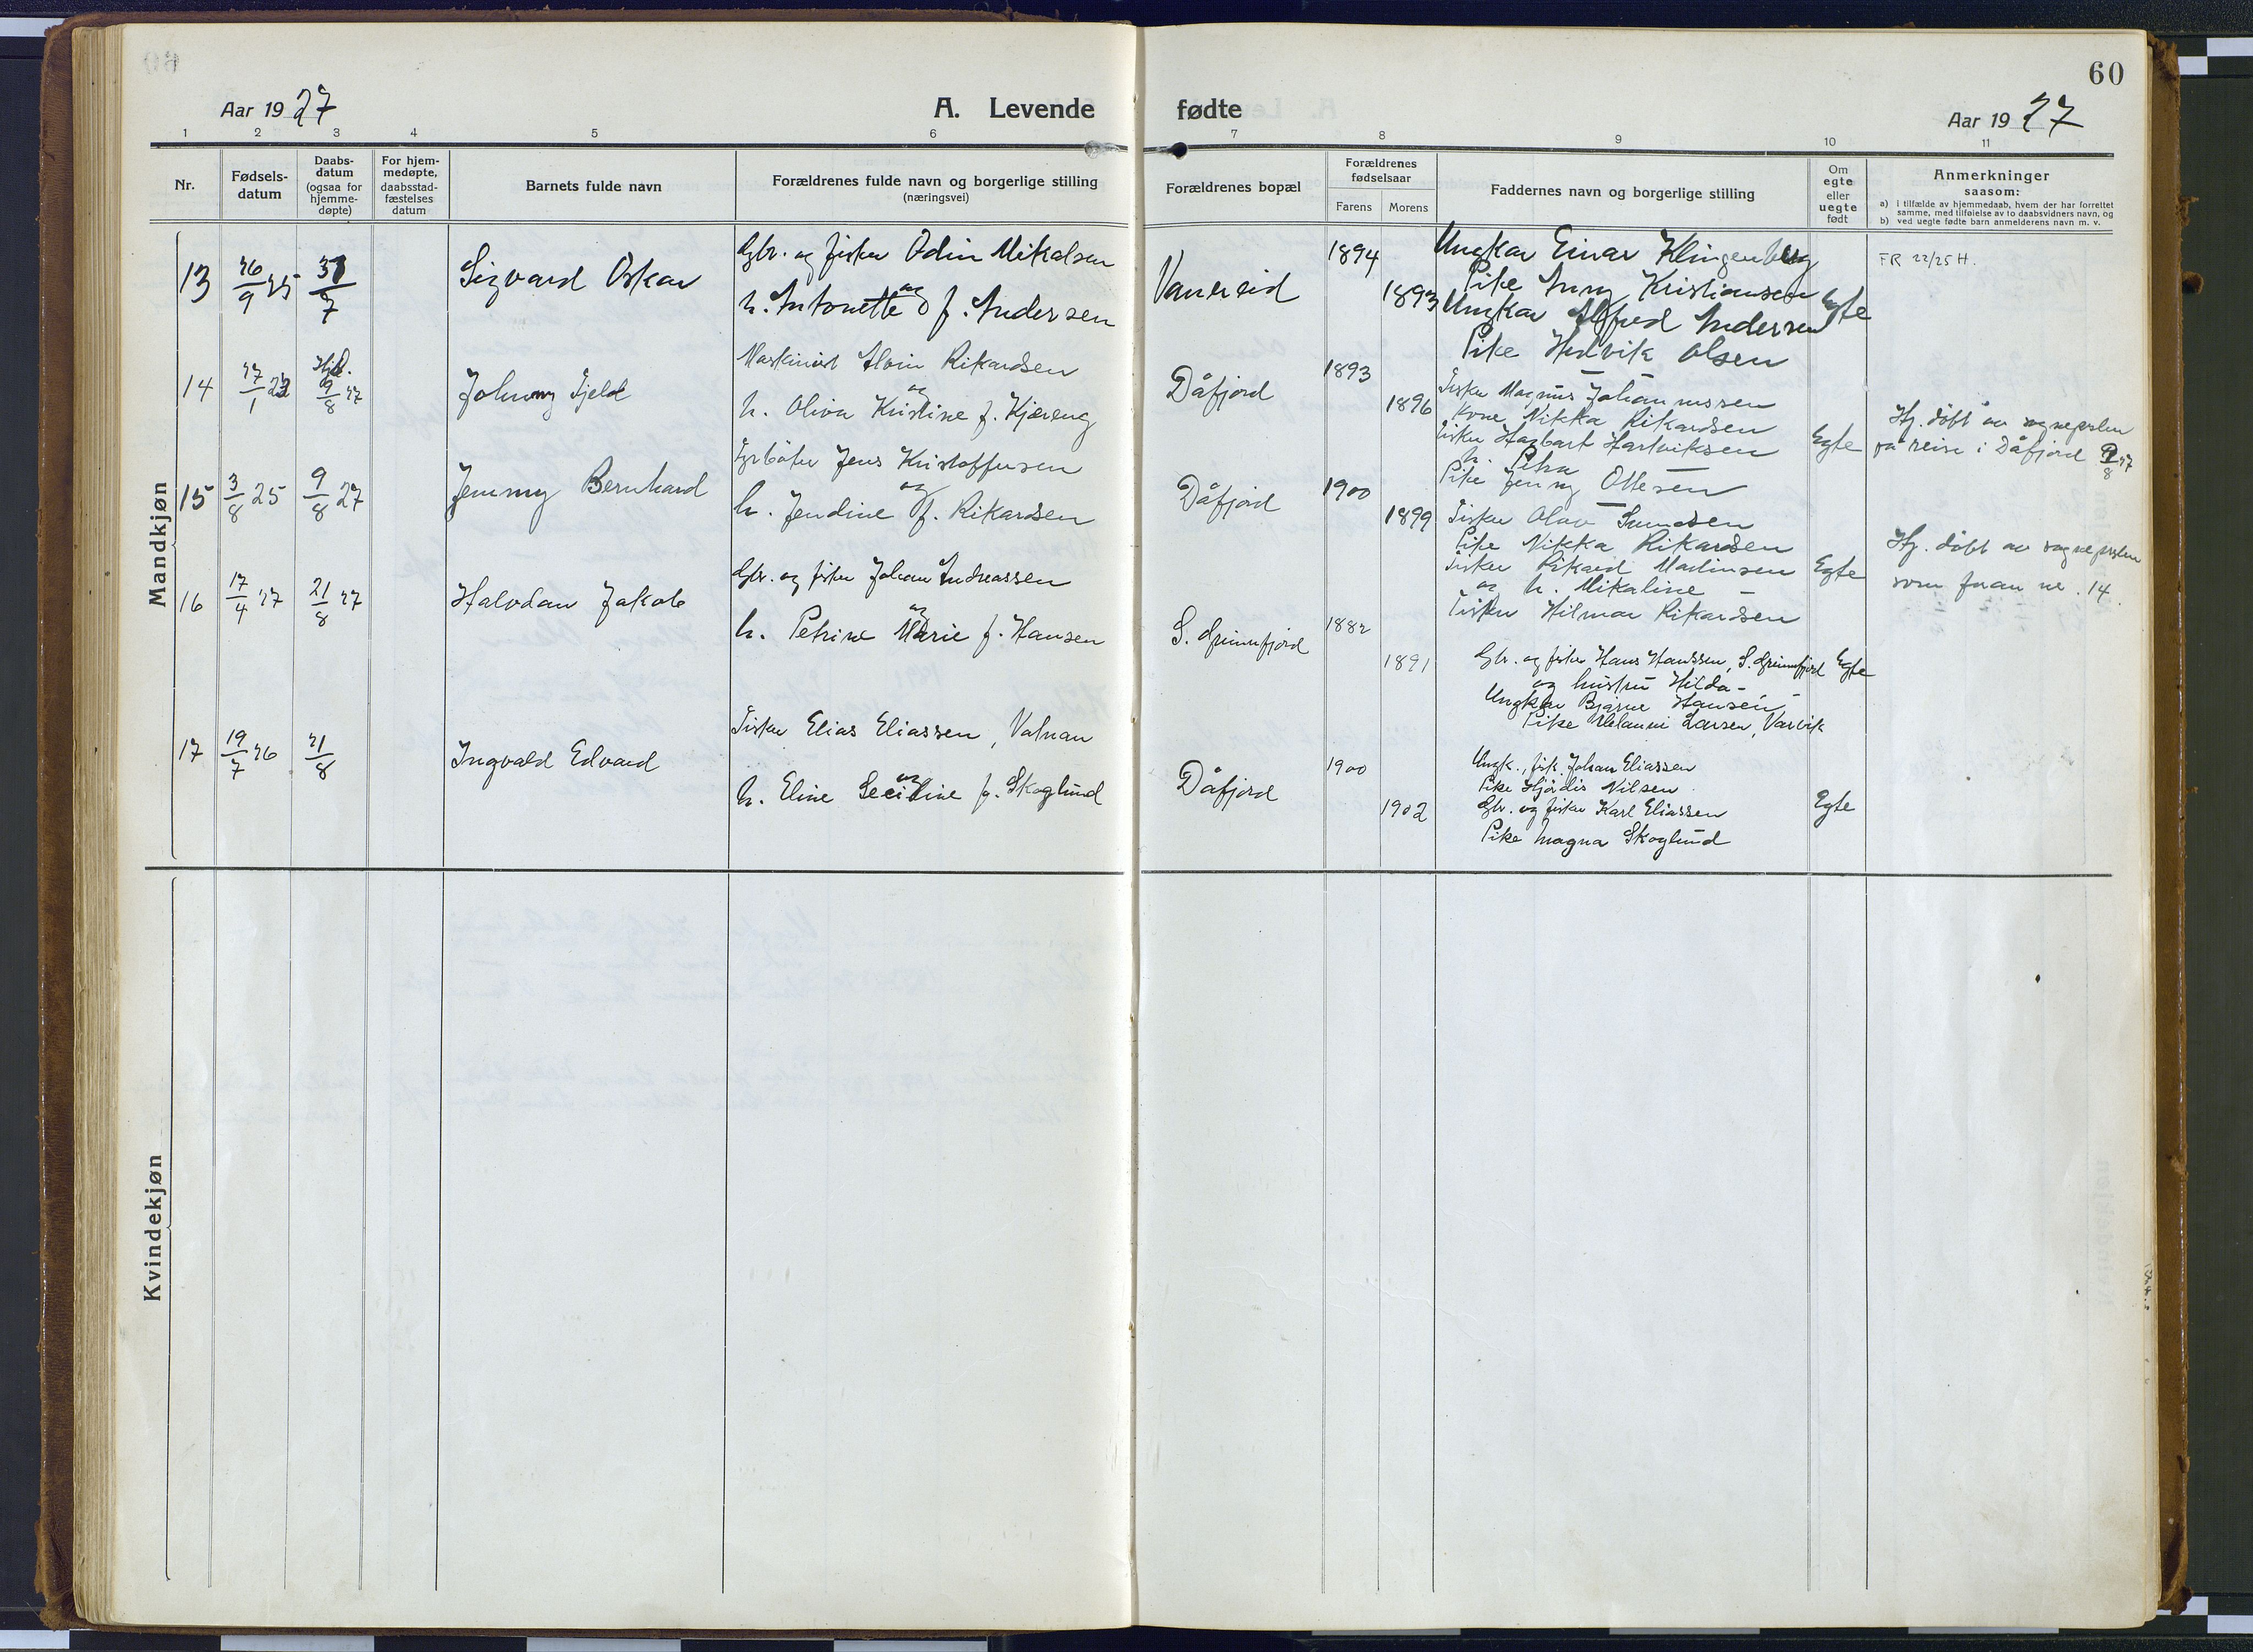 60
Aar 1927
A. Levende fødte
Aar 1927
1 2 3 4 5 6 7 8 9 10 11
Nr.
Fødsels-
datum
Daabs-
datum
(ogsaa for
hjemme-
døpte)
For hjem-
medøpte,
daabsstad-
fæstelses
datum
Barnets fulde navn
Forældrenes fulde navn og borgerlige stilling
(næringsvei)
Forældrenes bopæl
Forældrenes
fødselsaar
Farens Morens
Faddernes navn og borgerlige stilling
Om
egte
eller
uegte
født
Anmerkninger
saasom:
a) I tilfælde av hjemmedaab, hvem der har forrettet
samme, med tilføielse av to daabsvidners navn, og
b) ved uegte fødte barn anmelderens navn m. v.
Mandkjøn
13 26/9 25 31/7
Sigvard Oskar
Gbr. og fisker Odin Mikalsen
og
h. Antonette f. Andersen
Vannereid
1894
1893
Ungkar Einar Klingenberg
Pike Kristiansen
Ungkar Alfred Andersen
Pike Hedvik Olsen
Egte
FR 22/25 H.
14 27/1 Hjd. 9/8 27
Johnny Fjeld
Maskinist Alvin Rikardsen
og
h. Oliva Kristine f. Kjæreng
Dåfjord
1893
1896
Fisker Magnus Johannessen
Kone Nikka Rikardsen
Fisker Hagbart Hartviksen
h. Petra —
Pike Jenny Ottesen
Egte
Hj. døbt av sognepresten
på reise i Dåfjord 9/8 27
15 3/8 25 9/8 27
Jemmy Bernhard
Fyrbøter Jens Kristoffersen
og
h. Jendine f. Rikardsen
Dåfjord
1900
1899
Fisker Olav
Pike Nikka Rikardsen
Fisker Rikard Martinsen
og h. Mikaline —
Fisker Hilmar Rikardsen
Egte
Hj. døbt av sognepresten
som foran nr. 14.
16 17/4 27 21/8 27
Halvdan Jakob
Gbr. og fisker Johan Andreassen
og
h. Petrine Marie f. Hansen
S. Grunnfjord
1882
1891
Gbr. og fisker Hans Hanssen, S. Grunnfjord
og hustru Hilda —
Ungkar Bjarne Hansen, —
Pike Larsen, Varvik
Egte
17 19/7 26 21/8
Ingvald Edvard
Fisker Elias Eliassen,
og
h. Eline f. Skoglund
Dåfjord
1900
1902
Ungk., fisk. Johan Eliassen
Pike Hjørdis Nilsen
Gbr. og fisker Karl Eliassen
Pike Magna Skoglund
Egte
Kvindekjøn